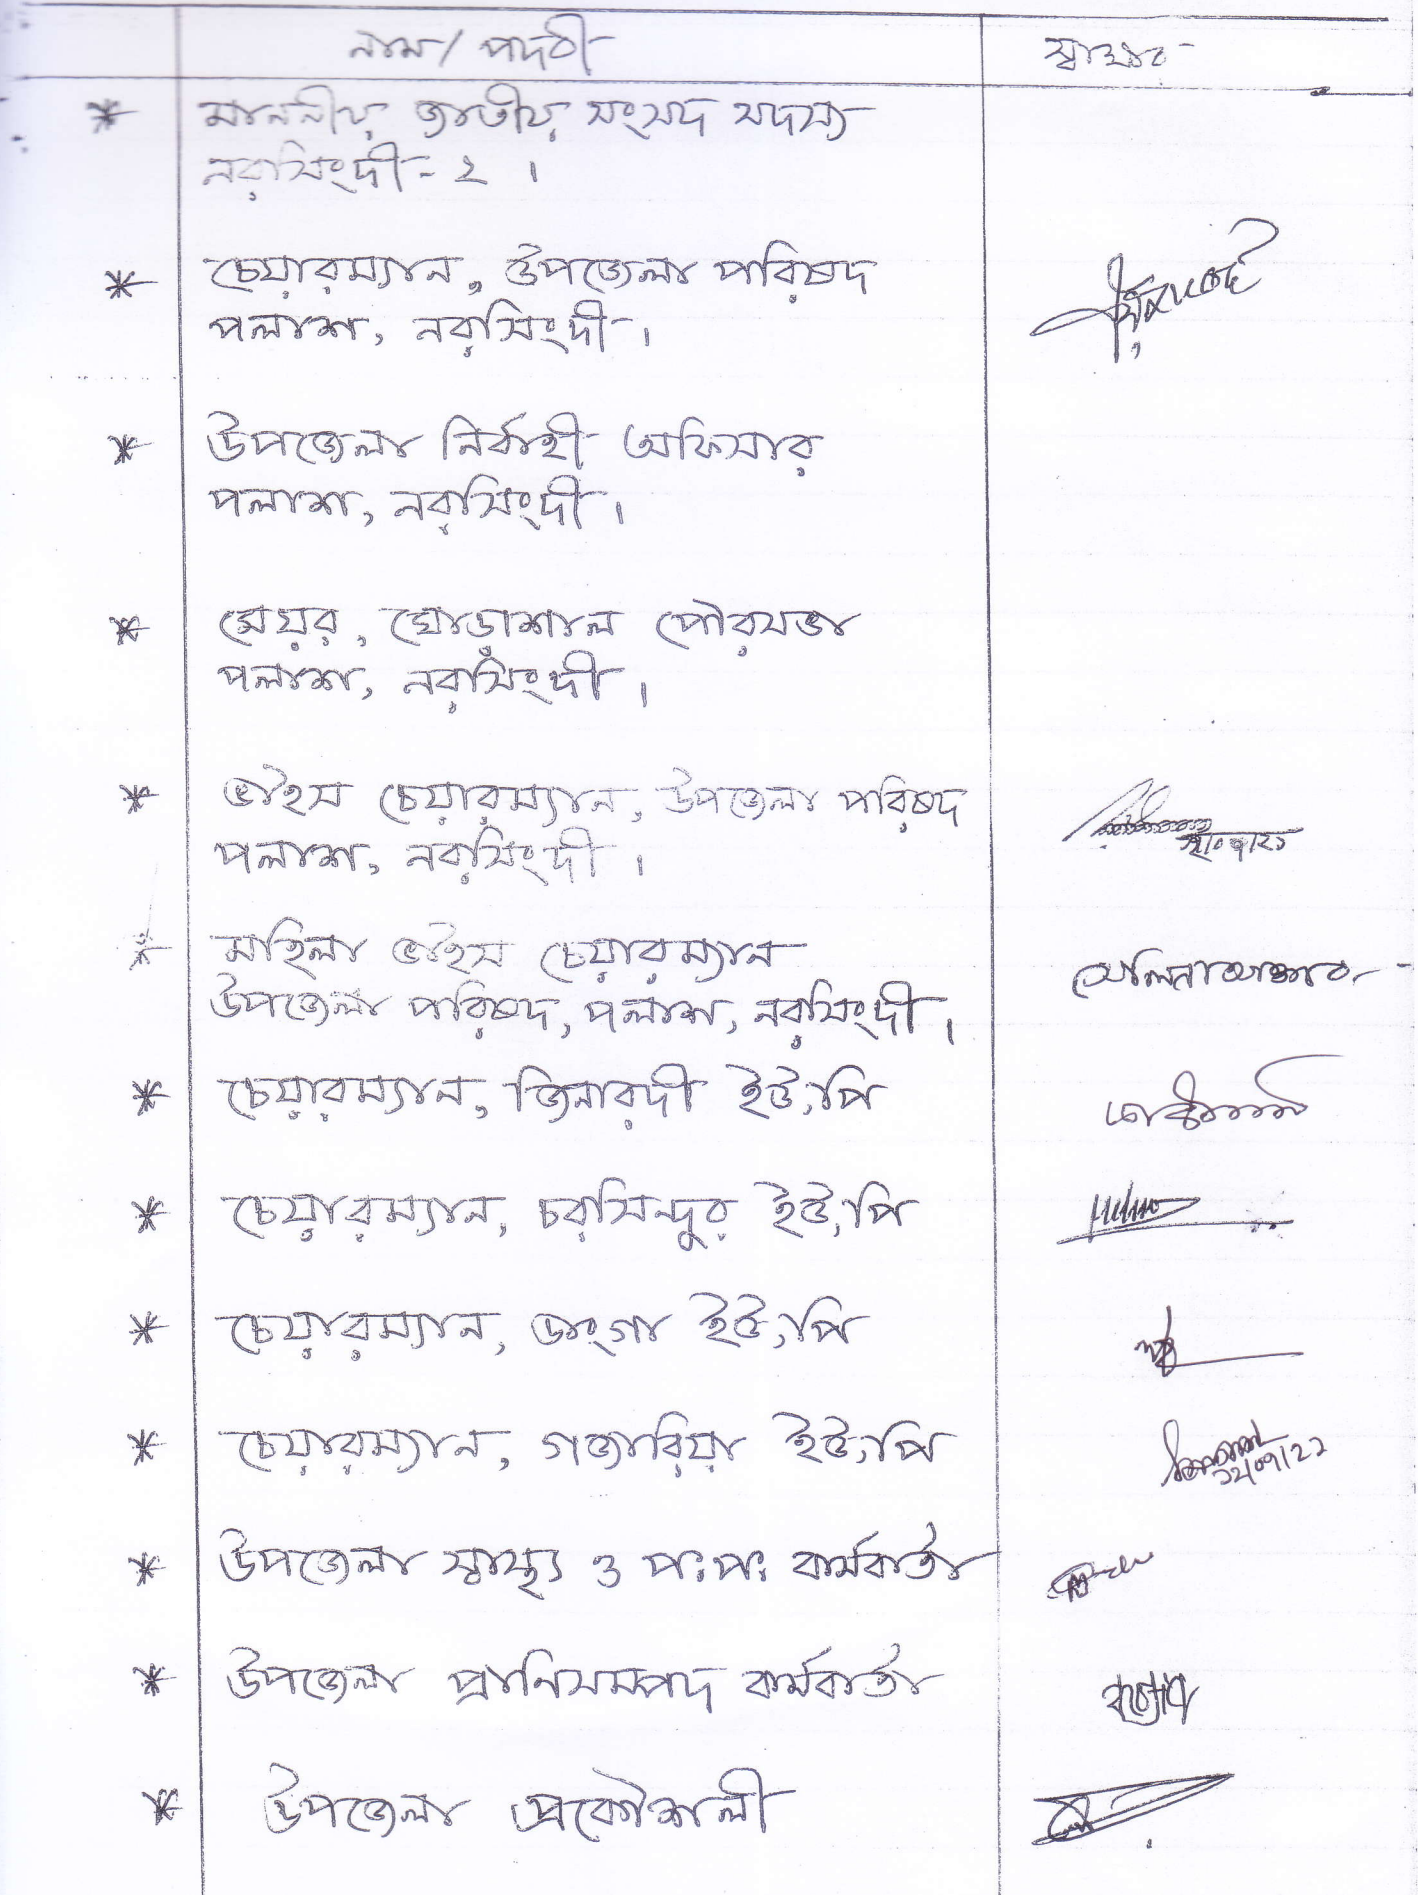 নাম/পদবী স্বাক্ষর
* মাননীয় জাতীয় সংসদ সদস্য
নরসিংদী-২ ।
* চেয়ারম্যান, উপজেলা পরিষদ
পলাশ, নরসিংদী ।
* উপজেলা নির্বাহী অফিসার
পলাশ, নরসিংদী ।
* মেয়র, ঘোড়াশাল পৌরসভা
পলাশ, নরসিংদী ।
* ভাইস চেয়ারম্যান, উপজেলা পরিষদ
পলাশ, নরসিংদী ।
* মহিলা ভাইস চেয়ারম্যান
উপজেলা পরিষদ, পলাশ, নরসিংদী ।
* চেয়ারম্যান, জিনারদী ইউ,পি
* চেয়ারম্যান, চরসিন্দুর ইউ,পি
* চেয়ারম্যান, ডাংগা ইউ,পি
* চেয়ারম্যান, গজারিয়া ইউ,পি
* উপজেলা স্বাস্থ্য ও প:প: কর্মকর্তা
* উপজেলা প্রানিসম্পদ কর্মকর্তা
* উপজেলা প্রকৌশলী